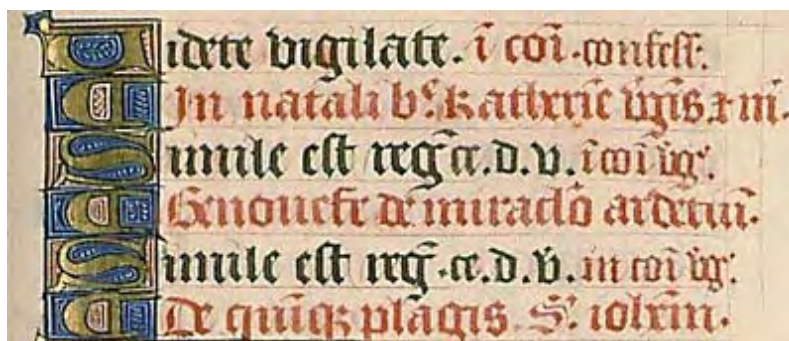 Videte vigilate. ī coī. confess̄.
In natali bᵉ Katherīe v̄gīs ⁊ m̄.
Simile est regꝫ ce. d. v. ī coī vgꝫ.
Genouefe de miraclo ardētiū.
Simile est regꝫ. ce. d. v. in coī vgꝫ.
De quīqꝫ plagis. S. ioh̄em.